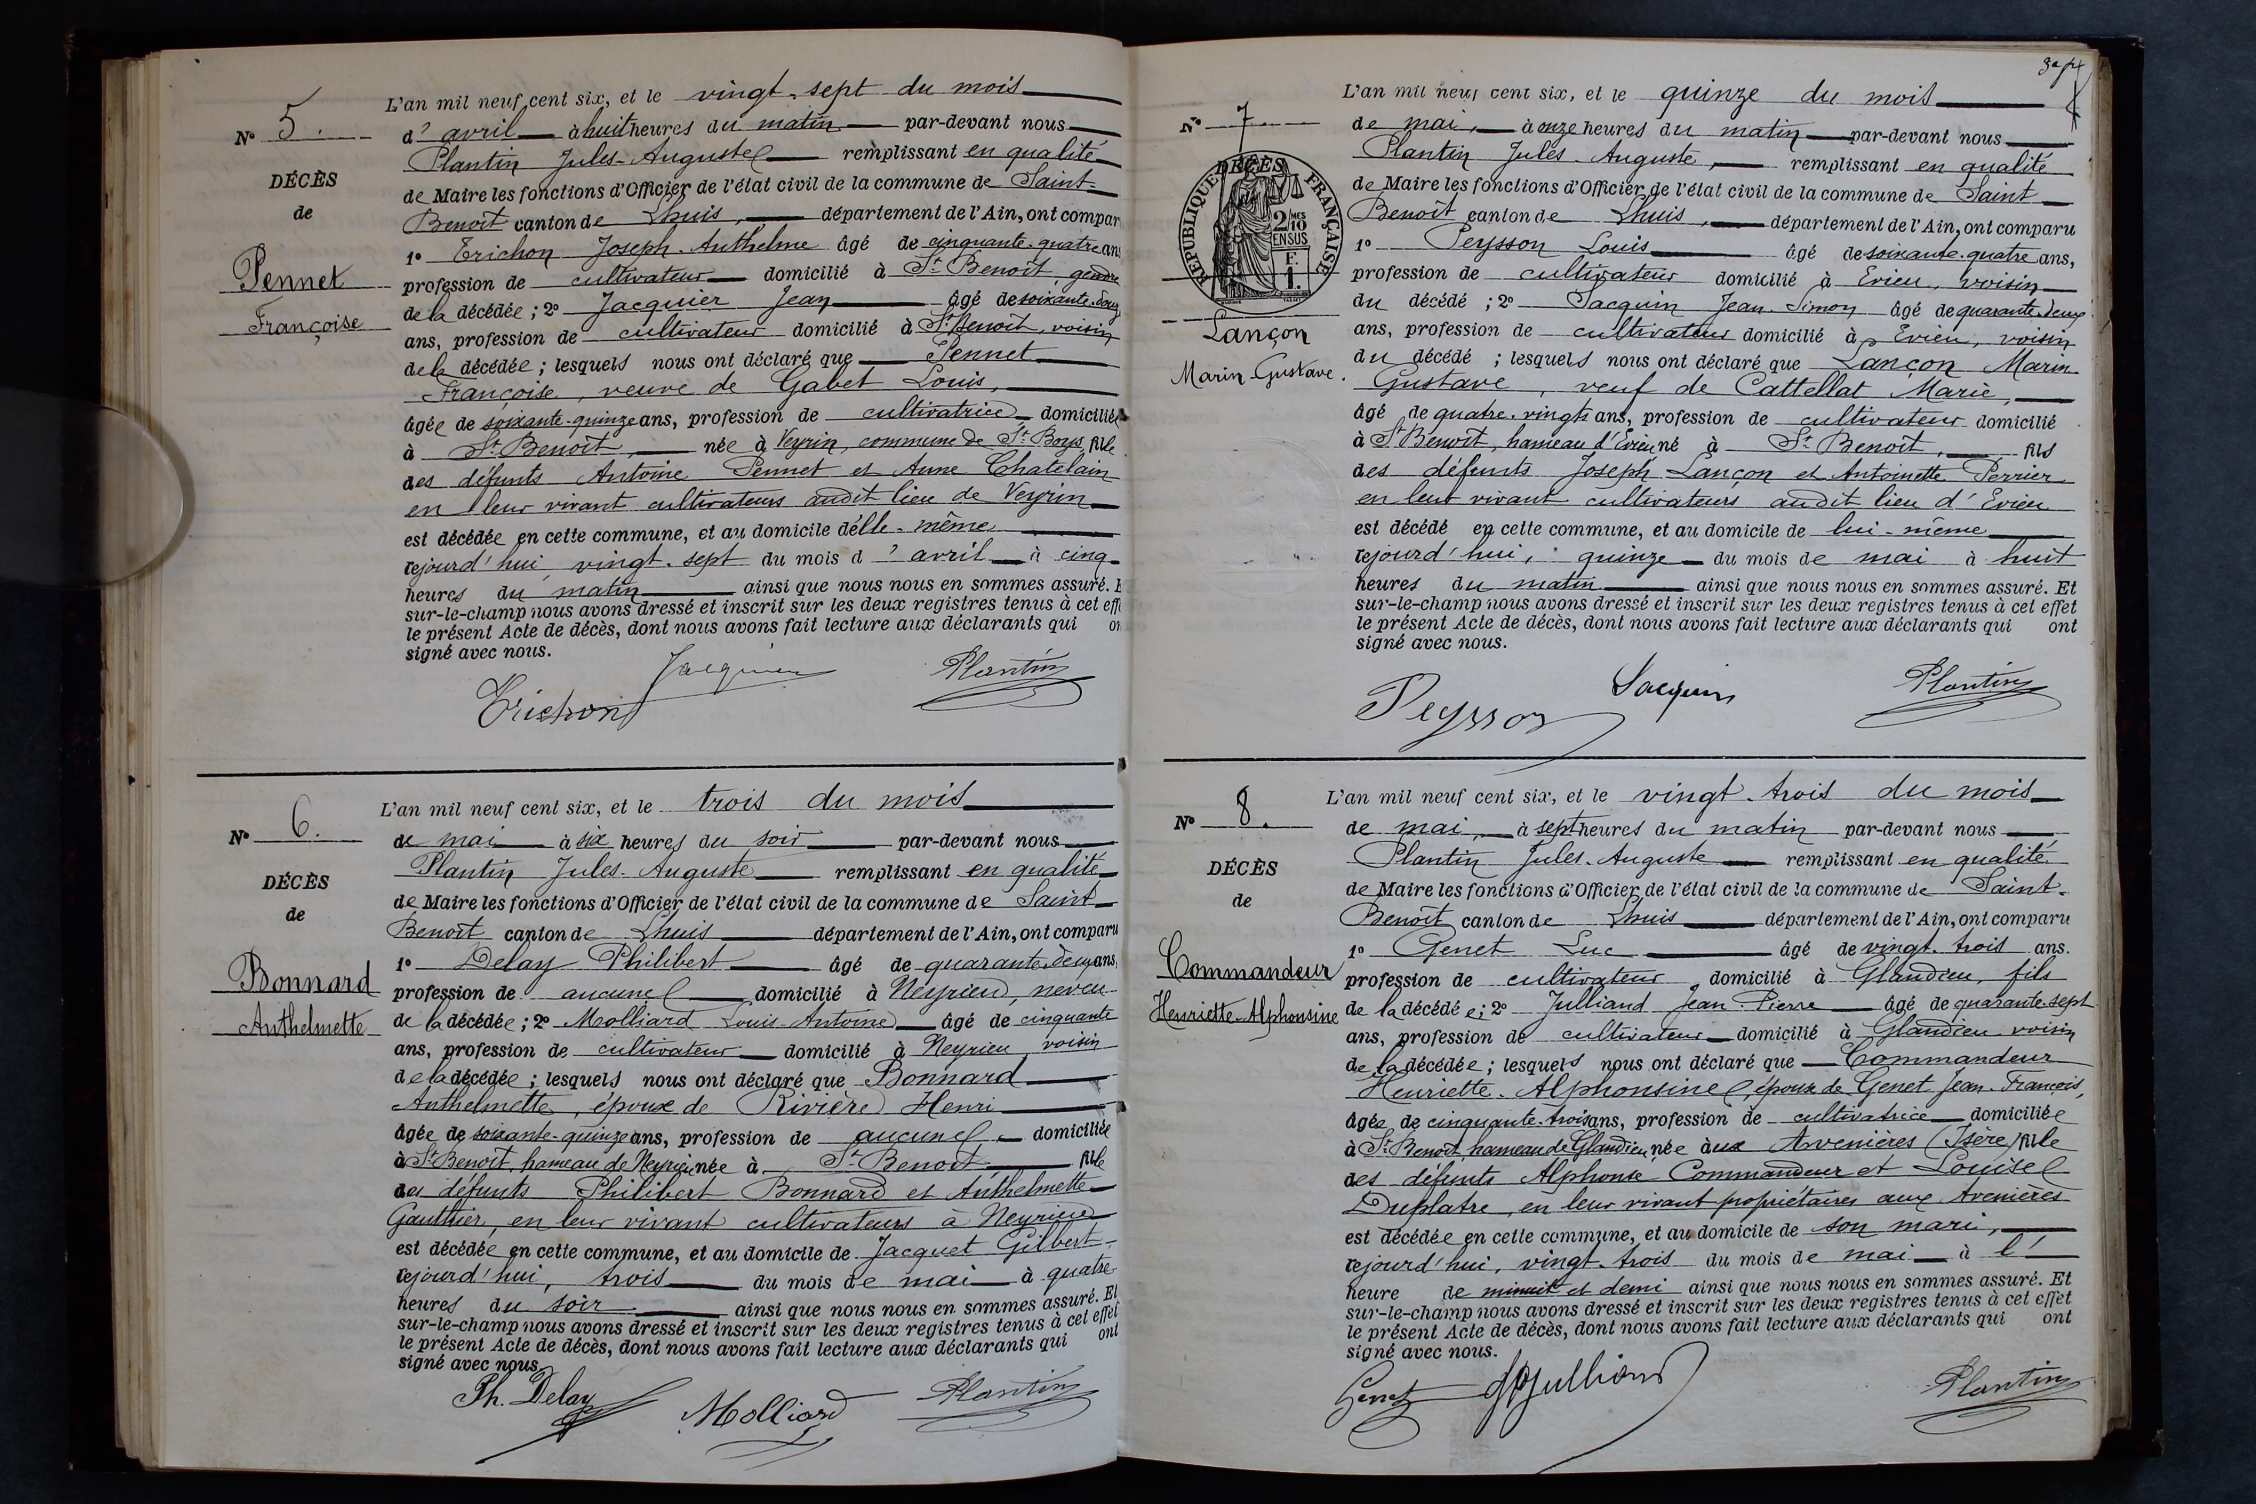 N° 5.
DÉCÈS
de
Pennet
Françoise
L'an mil neuf cent six, et le vingt-sept du mois
d'avril à huit heures du matin par-devant nous
Plantin Jules-Auguste remplissant en qualité
de Maire les fonctions d'Officier de l'état civil de la commune de Saint-
Benoît canton de Lhuis, département de l'Ain, ont compar
1° Trichon Joseph-Anthelme âgé de cinquante-quatre ans
profession de cultivateur domicilié à St Benoît, gendre
de la décédée ; 2° Jacquier Jean âgé de soixante-douze
ans, profession de cultivateur domicilié à St Benoît, voisin
de la décédée ; lesquels nous ont déclaré que Pennet
Françoise, veuve de Gabet Louis,
âgée de soixante-quinze ans, profession de cultivatrice domiciliée
à St Benoît, née à Veyrin, commune de St Boys, fille
des défunts Antoine Pennet et Anne Chatelain
en leur vivant cultivateurs audit lieu de Veyrin
est décédée en cette commune, et au domicile d'elle-même
cejourd'hui vingt-sept du mois d'avril à cinq
heures du matin ainsi que nous nous en sommes assuré. E
sur-le-champ nous avons dressé et inscrit sur les deux registres tenus à cet eff
le présent Acte de décès, dont nous avons fait lecture aux déclarants qui on
signé avec nous.
Jacquier
Plantin
Trichon
N° 6.
DÉCÈS
de
Bonnard
Anthelmette
L'an mil neuf cent six, et le trois du mois
de mai à six heures du soir par-devant nous
Plantin Jules-Auguste remplissant en qualité
de Maire les fonctions d'Officier de l'état civil de la commune de Saint-
Benoît canton de Lhuis département de l'Ain, ont comparu
1° Delay Philibert âgé de quarante-deux ans,
profession de aucune domicilié à Neyrieu, neveu
de la décédée ; 2° Molliard Louis-Antoine âgé de cinquante
ans, profession de cultivateur domicilié à Neyrieu, voisin
de la décédée ; lesquels nous ont déclaré que Bonnard
Anthelmette, épouse de Rivière Henri
âgée de soixante-quinze ans, profession de aucune domiciliée
à St Benoît, hameau de Neyrieu née à St Benoît fille
des défunts Philibert Bonnard et Anthelmette
Gauthier, en leur vivant cultivateurs à Neyrieu
est décédée en cette commune, et au domicile de Jacquet Gilbert
cejourd'hui, trois du mois de mai à quatre
heures du soir ainsi que nous nous en sommes assuré. Et
sur-le-champ nous avons dressé et inscrit sur les deux registres tenus à cet effet
le présent Acte de décès, dont nous avons fait lecture aux déclarants qui ont
signé avec nous
Ph. Delay
Molliard
Plantin
N° 7
DÉCÈS
RÉPUBLIQUE FRANÇAISE
2/10 MES
EN SUS
F.
1.
Lançon
Marin-Gustave.
L'an mil neuf cent six, et le quinze du mois
de mai, à onze heures du matin par-devant nous
Plantin Jules-Auguste, remplissant en qualité
de Maire les fonctions d'Officier de l'état civil de la commune de Saint-
Benoît canton de Lhuis, département de l'Ain, ont comparu
1° Peysson Louis âgé de soixante-quatre ans,
profession de cultivateur domicilié à Evieu, voisin
du décédé ; 2° Jacquin Jean-Simon âgé de quarante-deux
ans, profession de cultivateur domicilié à Evieu, voisin
du décédé ; lesquels nous ont déclaré que Lançon Marin
Gustave, veuf de Cattellat Marie,
âgé de quatre-vingts ans, profession de cultivateur domicilié
à St Benoît, hameau d'Evieu né à St Benoît, fils
des défunts Joseph Lançon et Antoinette Perrier
en leur vivant cultivateurs audit lieu d'Evieu
est décédé en cette commune, et au domicile de lui-même
cejourd'hui, quinze du mois de mai à huit
heures du matin ainsi que nous nous en sommes assuré. Et
sur-le-champ nous avons dressé et inscrit sur les deux registres tenus à cet effet
le présent Acte de décès, dont nous avons fait lecture aux déclarants qui ont
signé avec nous.
Jacquin
Plantin
Peysson
N° 8.
DÉCÈS
de
Commandeur
Henriette-Alphonsine
L'an mil neuf cent six, et le vingt-trois du mois
de mai, à sept heures du matin par-devant nous
Plantin Jules-Auguste remplissant en qualité
de Maire les fonctions d'Officier de l'état civil de la commune de Saint-
Benoît canton de Lhuis département de l'Ain, ont comparu
1° Genet Luc âgé de vingt-trois ans.
profession de cultivateur domicilié à Glandieu, fils
de la décédée ; 2° Julliand Jean-Pierre âgé de quarante-sept
ans, profession de cultivateur domicilié à Glandieu voisin
de la décédée ; lesquels nous ont déclaré que Commandeur
Henriette-Alphonsine, épouse de Genet Jean-François,
âgée de cinquante-trois ans, profession de cultivatrice domiciliée
à St Benoît, hameau de Glandieu, née aux Avenières (Isère) fille
des défunts Alphonse Commandeur et Louise
Duplatre, en leur vivant propriétaires aux Avenières
est décédée en cette commune, et au domicile de son mari,
cejourd'hui, vingt-trois du mois de mai à l'
heure de minuit et demi ainsi que nous nous en sommes assuré. Et
sur-le-champ nous avons dressé et inscrit sur les deux registres tenus à cet effet
le présent Acte de décès, dont nous avons fait lecture aux déclarants qui ont
signé avec nous.
Genet
JPJulliand
Plantin